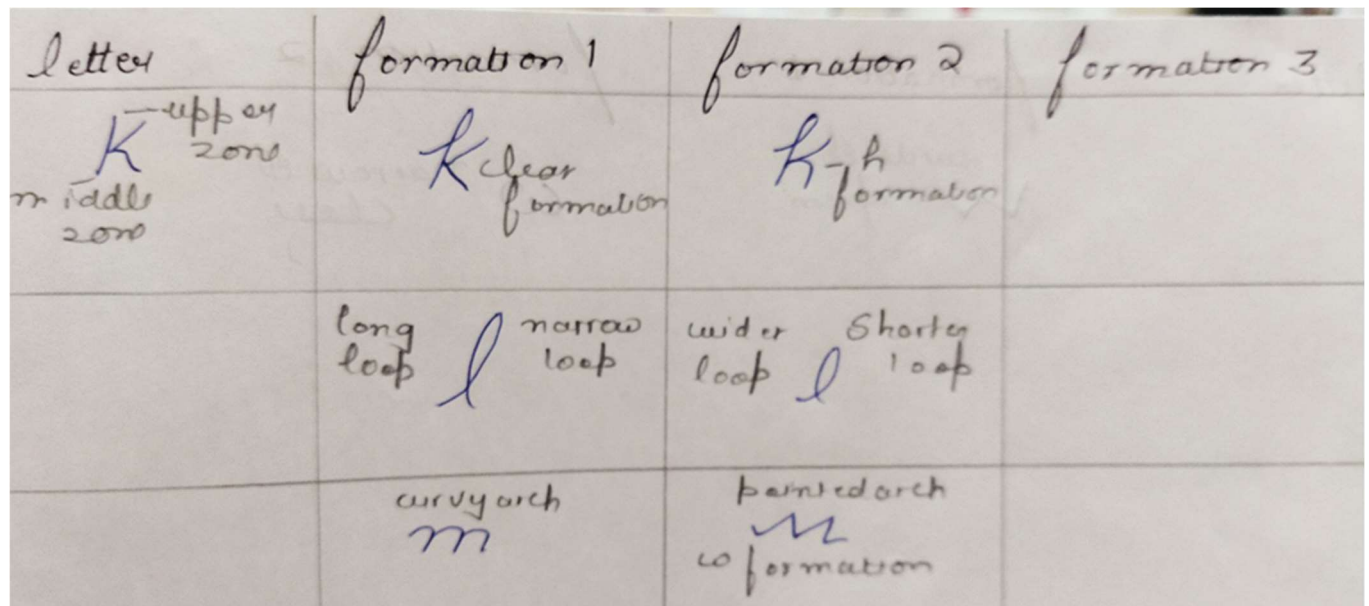 letter formation 1 formation 2 formation 3
K - upper
zone
middle
zone
k clear
formation
k - h
formation
long
loop
l
narrow
loop
wider
loop
l
Shorter
loop
curvy arch
m
pointed arch
m
w formation